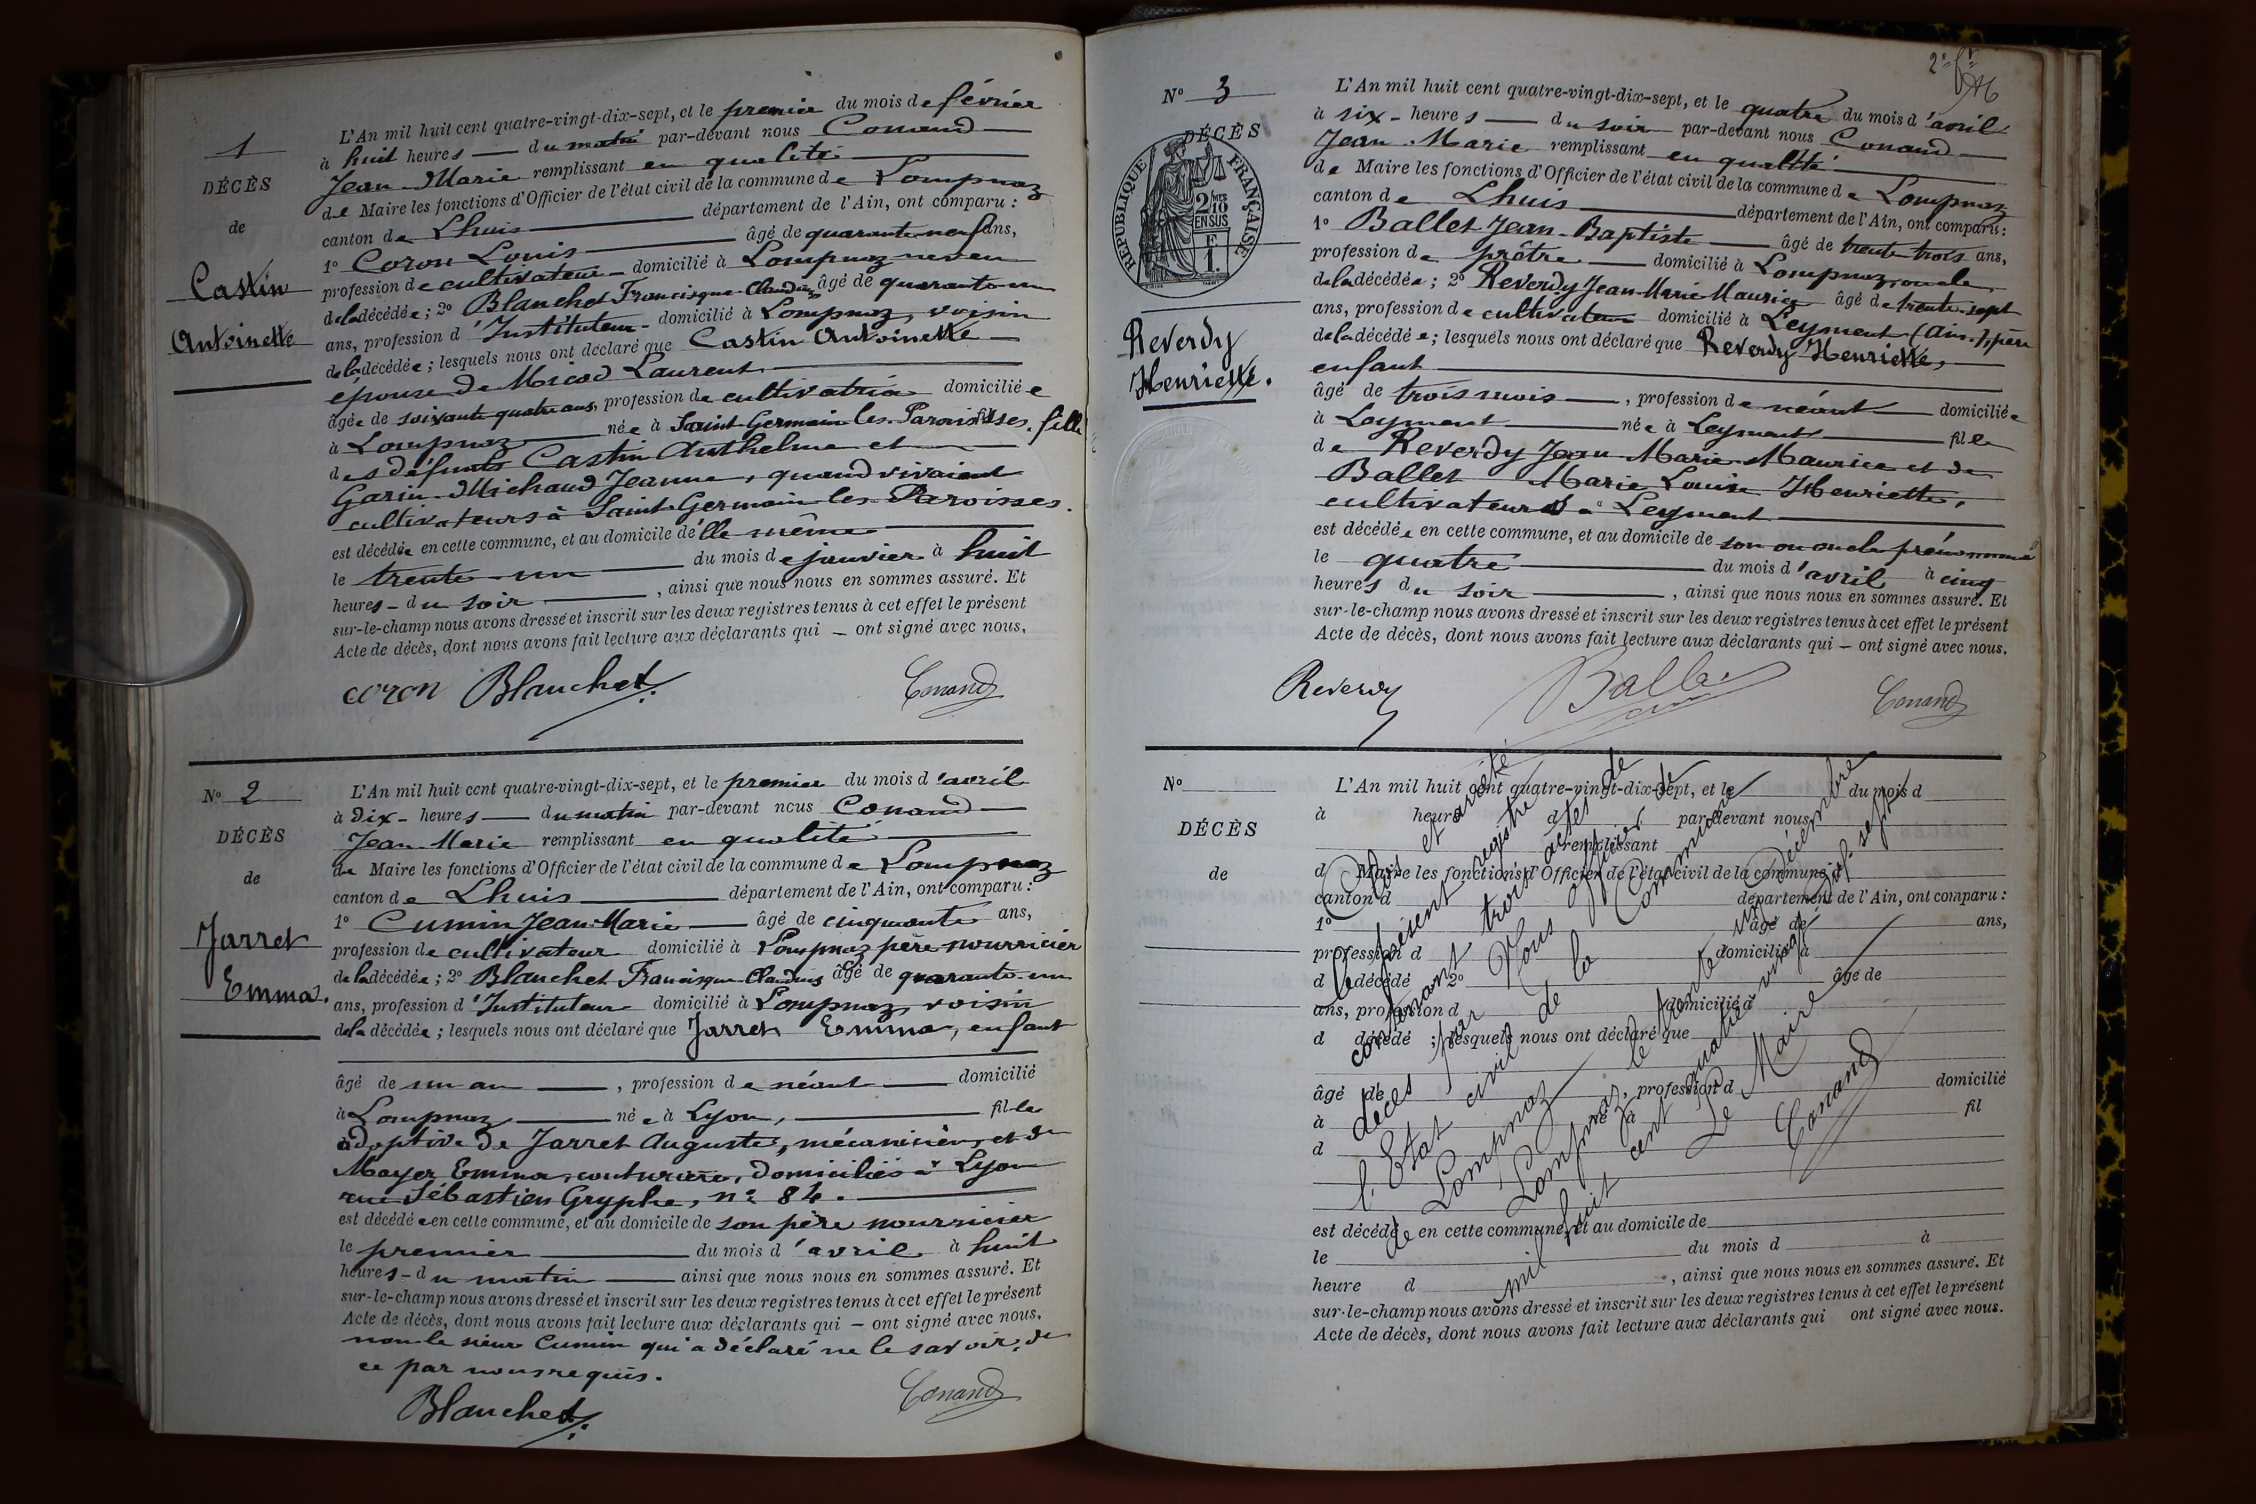 1
DÉCÈS
de
Castin
Antoinette
L'An mil huit cent quatre-vingt-dix-sept, et le premier du mois de février
à huit heures du matin par-devant nous Conand
Jean-Marie remplissant en qualité
de Maire les fonctions d'Officier de l'état civil de la commune de Lompnaz
canton de Lhuis département de l'Ain, ont comparu :
1° Coron Louis âgé de quarante-neuf ans,
profession de cultivateur domicilié à Lompnaz neveu
de la décédée ; 2° Blanchet Francisque-Claudius âgé de quarante-un
ans, profession d'Instituteur domicilié à Lompnaz, voisin
de la décédée ; lesquels nous ont déclaré que Castin Antoinette
épouse de Micod Laurent
âgée de soixante-quatre ans, profession de cultivatrice domiciliée
à Lompnaz née à Saint-Germain-les-Paroisses, fille
des défunts Castin Anthelme et
Garin-Michaud Jeanne, quand vivaient
cultivateurs à Saint-Germain-les-Paroisses.
est décédée en cette commune, et au domicile d'elle-même
le trente-un du mois de janvier à huit
heures du soir, ainsi que nous nous en sommes assuré. Et
sur-le-champ nous avons dressé et inscrit sur les deux registres tenus à cet effet le présent
Acte de décès, dont nous avons fait lecture aux déclarants qui – ont signé avec nous.
coron Blanchet Conand
N° 2
DÉCÈS
de
Jarret
Emma.
L'An mil huit cent quatre-vingt-dix-sept, et le premier du mois d'avril
à dix heures du matin par-devant nous Conand
Jean-Marie remplissant en qualité
de Maire les fonctions d'Officier de l'état civil de la commune de Lompnaz
canton de Lhuis département de l'Ain, ont comparu :
1° Cumin Jean-Marie âgé de cinquante ans,
profession de cultivateur domicilié à Lompnaz père nourricier
de la décédée ; 2° Blanchet Francisque-Claudius âgé de quarante-un
ans, profession d'Instituteur domicilié à Lompnaz, voisin
de la décédée ; lesquels nous ont déclaré que Jarret Emma, enfant
âgé de un an, profession de néant domicilié
à Lompnaz née à Lyon, fille
adoptive de Jarret Auguste, mécanicien, et de
Mayer Emma, couturière, domiciliés à Lyon
rue Sébastien Gryphe, n° 84.
est décédée en cette commune, et au domicile de son père nourricier
le premier du mois d'avril à huit
heures du matin ainsi que nous nous en sommes assuré. Et
sur-le-champ nous avons dressé et inscrit sur les deux registres tenus à cet effet le présent
Acte de décès, dont nous avons fait lecture aux déclarants qui – ont signé avec nous.
non le sieur Cumin qui a déclaré ne le savoir, de
ce par nous requis.
Blanchet Conand
2e
N° 3
DÉCÈS
RÉPUBLIQUE FRANÇAISE
2/10 EN SUS
Reverdy
Henriette.
L'An mil huit cent quatre-vingt-dix-sept, et le quatre du mois d'avril
à six heures du soir par-devant nous Conand
Jean-Marie remplissant en qualité
de Maire les fonctions d'Officier de l'état civil de la commune de Lompnaz
canton de Lhuis département de l'Ain, ont comparu :
1° Ballet Jean-Baptiste âgé de trente-trois ans,
profession de prêtre domicilié à Lompnaz, oncle
de la décédée ; 2° Reverdy Jean-Marie-Maurice âgé de trente-sept
ans, profession de cultivateur domicilié à Leyment (Ain), père
de la décédée ; lesquels nous ont déclaré que Reverdy Henriette,
enfant
âgé de trois mois, profession de néant domiciliée
à Leyment née à Leyment fille
de Reverdy Jean-Marie-Maurice et de
Ballet Marie Louise Henriette,
cultivateurs à Leyment
est décédée en cette commune, et au domicile de son oncle prénommé
le quatre du mois d'avril à cinq
heures du soir, ainsi que nous nous en sommes assuré. Et
sur-le-champ nous avons dressé et inscrit sur les deux registres tenus à cet effet le présent
Acte de décès, dont nous avons fait lecture aux déclarants qui – ont signé avec nous.
Reverdy Ballet Conand
N°
DÉCÈS
de
L'An mil huit cent quatre-vingt-dix-sept, et le du mois d
à heure d par-devant nous
remplissant
d Maire les fonctions d'Officier de l'état civil de la commune d
canton d département de l'Ain, ont comparu :
1° âgé de ans,
profession d domicilié à
d décédé 2° âgé de
ans, profession d domicilié à
d décédé ; lesquels nous ont déclaré que
âgé de, profession d domicilié
à né à fil
d
est décédé en cette commune, et au domicile de
le du mois d à
heure d, ainsi que nous nous en sommes assuré. Et
sur-le-champ nous avons dressé et inscrit sur les deux registres tenus à cet effet le présent
Acte de décès, dont nous avons fait lecture aux déclarants qui ont signé avec nous.
Clos et arrêté
le présent registre
contenant trois actes de
décès par Nous officier de
l'Etat civil de la Commune
de Lompnaz
Lompnaz le trente un décembre
mil huit cent quatre vingt dix-sept
Le Maire
Conand